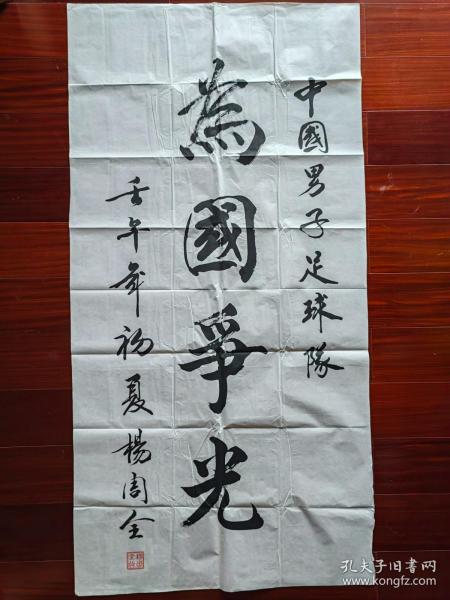 中國男子足球隊
為國爭光
壬午年初夏楊周全
孔夫子旧书网
www.kongfz.com